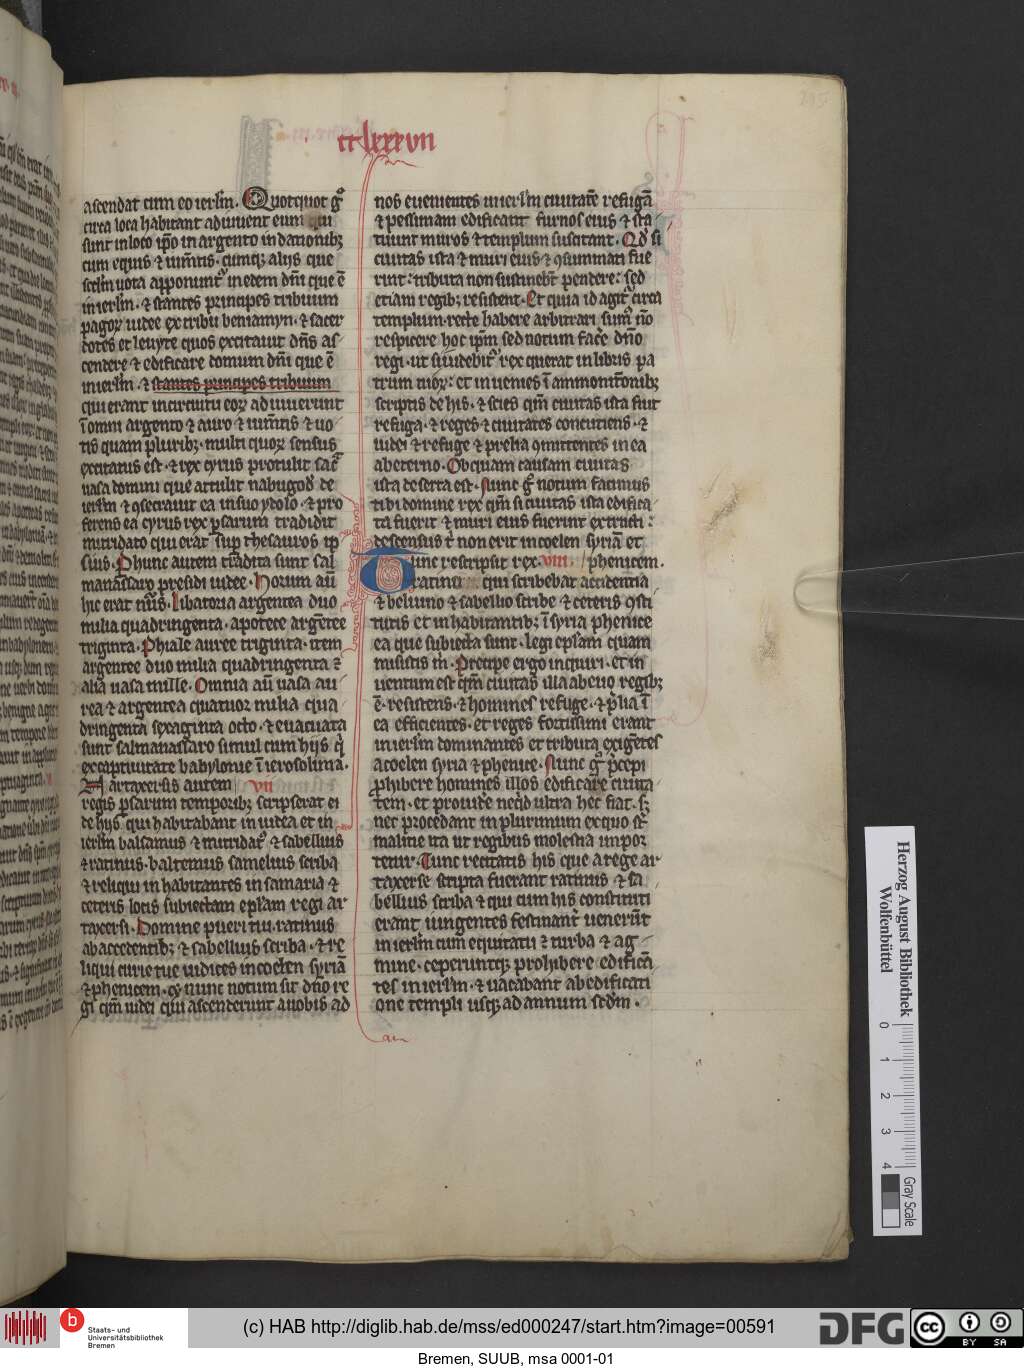 cclxxxvii
ascendat cum eo ierl'm. Quotquot g°
circa loca habitant adiuvent eum qui
sunt in loco ip̄o in argento in dationib;
cum equis & ium̄tis. cumq; aliis que
sc̄dm uota apponunt̉ in edem dn̄i que ē
in ierl'm. & stantes principes tribuum
pagoꝝ iudee ex tribu beniamyn. & sacer
dotes et leuyte quos excitauit dn̄s as
cendere & edificare domum dn̄i que ē
in ierl'm. & stantes principes tribuum
qui erant in circuitu eoꝝ adiuuerunt
ī omni argento & auro & ium̄tis & uo
tis quam plurib;. multi quoꝝ sensus
excitatus est. & rex cyrus protulit sac̄
uasa domini que attulit nabugod̄ de
ierl'm & ꝯsecrauit ea in suo ydolo. & pro
ferens ea cyrus rex p̱sarum tradidit
mitridato qui erat sup̱ thesauros ip̄
sius. Phunc autem tradita sunt sal
manassaro presidi iudee. Horum aū
hic erat nūs. Libatoria argentea duo
milia quadringenta. apotece argētee
triginta. Phiale auree triginta. item
argentee duo milia quadringenta &
alia uasa mille. Omnia aū uasa au
rea & argentea quatuor milia qua
dringenta sexaginta octo. & euacuata
sunt salmanassaro simul cum hijs q̇
ex captiuitate babylonie ī ierosolima.
Artaxersis autem vii
regis p̱sarum temporib; scripserat ei
de hijs qui habitabant in iudea et in
ierl'm balsamus & mitridat᷒ & sabellius
& ratinus. baltemus samelius scriba
& reliqui inhabitantes in samaria &
ceteris locis subiectam ep̄lam regi ar
taxersi. Domine pueri tui. ratinus
ab accedentib; & sabellius scriba. & re
liqui curie tue iudices in coelen syriā
& phenicem. Et nunc notum sit dn̄o re
gi qm̄ iudei qui ascenderunt a uobis ad
nos euenientes in ierl'm ciuitatē refugā
& pessimam edificant furnos eius & sta
tuunt muros & templum suscitant. Qd̓ si
ciuitas ista & muri eius & ꝯsummati fue
rint: tributa non sustinebt̄ pendere: sed
etiam regib; resistent. Et quia id agit̉ circa
templum. recte habere arbitrati sum᷒ n̄o
respicere hoc ip̄m sed notum fac̄e dn̄o
regi. ut si uidebit̉ rex querat in libris pa
trum tuoꝝ: et inuenies ī ammonit̄onib;
scriptis de his. & scies qm̄ ciuitas ista fuit
refuga. & reges & ciuitates concutiens. &
iudei & refuge & prelia ꝯmittentes in ea
ab eterno. Ob quam causam ciuitas
ista deserta est. Nunc g° notum facimus
tibi domine rex qm̄ si ciuitas ista edifica
ta fuerit & muri eius fuerint extructi:
descensus t̓ non erit in coelen syriā et
Tunc rescripsit rex viii. phenicem.
ratino qui scribebat accidentia
& beluino & sabellio scribe & ceteris ꝯsti
tutis et inhabitantib; ī syria phenice
ea que subiecta sunt. Legi ep̄lam quam
misistis m̓. Precepi ergo inquiri. et in
uentum est qm̄ ciuitas illa ab euo regib;
ē. resistens. & homines refuge. & p̓lia ī
ea efficientes. et reges fortissimi erant
in ierl'm dominantes et tributa exigētes
a coelen syria & phenice. Nunc g° p̓cepi
ꝓhibere homines illos edificare ciuita
tem. et prouid̓e neq̇d ultra hec fiat. s;
nec procedant in plurimum ex quo s̄t
malitie ita ut regibus molestia impor
tetur. Tunc recitatis his que a rege ar
taxerse scripta fuerant ratinus & sa
bellius scriba & qui cum his constituti
erant iungentes festinant̓ uenerūt
in ierl'm cum equitatu & turba & ag
mine. ceperuntq; prohibere edificā
tes in ierl'm. & uacabant ab edificati
one templi usq; ad annum sc̄dm.
Herzog August Bibliothek
Wolfenbüttel
0 1 2 3 4
Gray Scale
b
Staats- und
Universitätsbibliothek
Bremen
(c) HAB http://diglib.hab.de/mss/ed000247/start.htm?image=00591
DFG
cc
BY SA
Bremen, SUUB, msa 0001-01